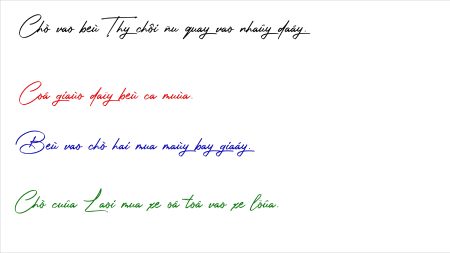 Chò vaø beù Thy chôi ñu quay vaø nhaûy daây.
Coâ giaùo daïy beù ca muùa.
Beù vaø chò hai mua maùy bay giaáy.
Chò cuûa Laoi mua xe oâ toâ vaø xe löûa.